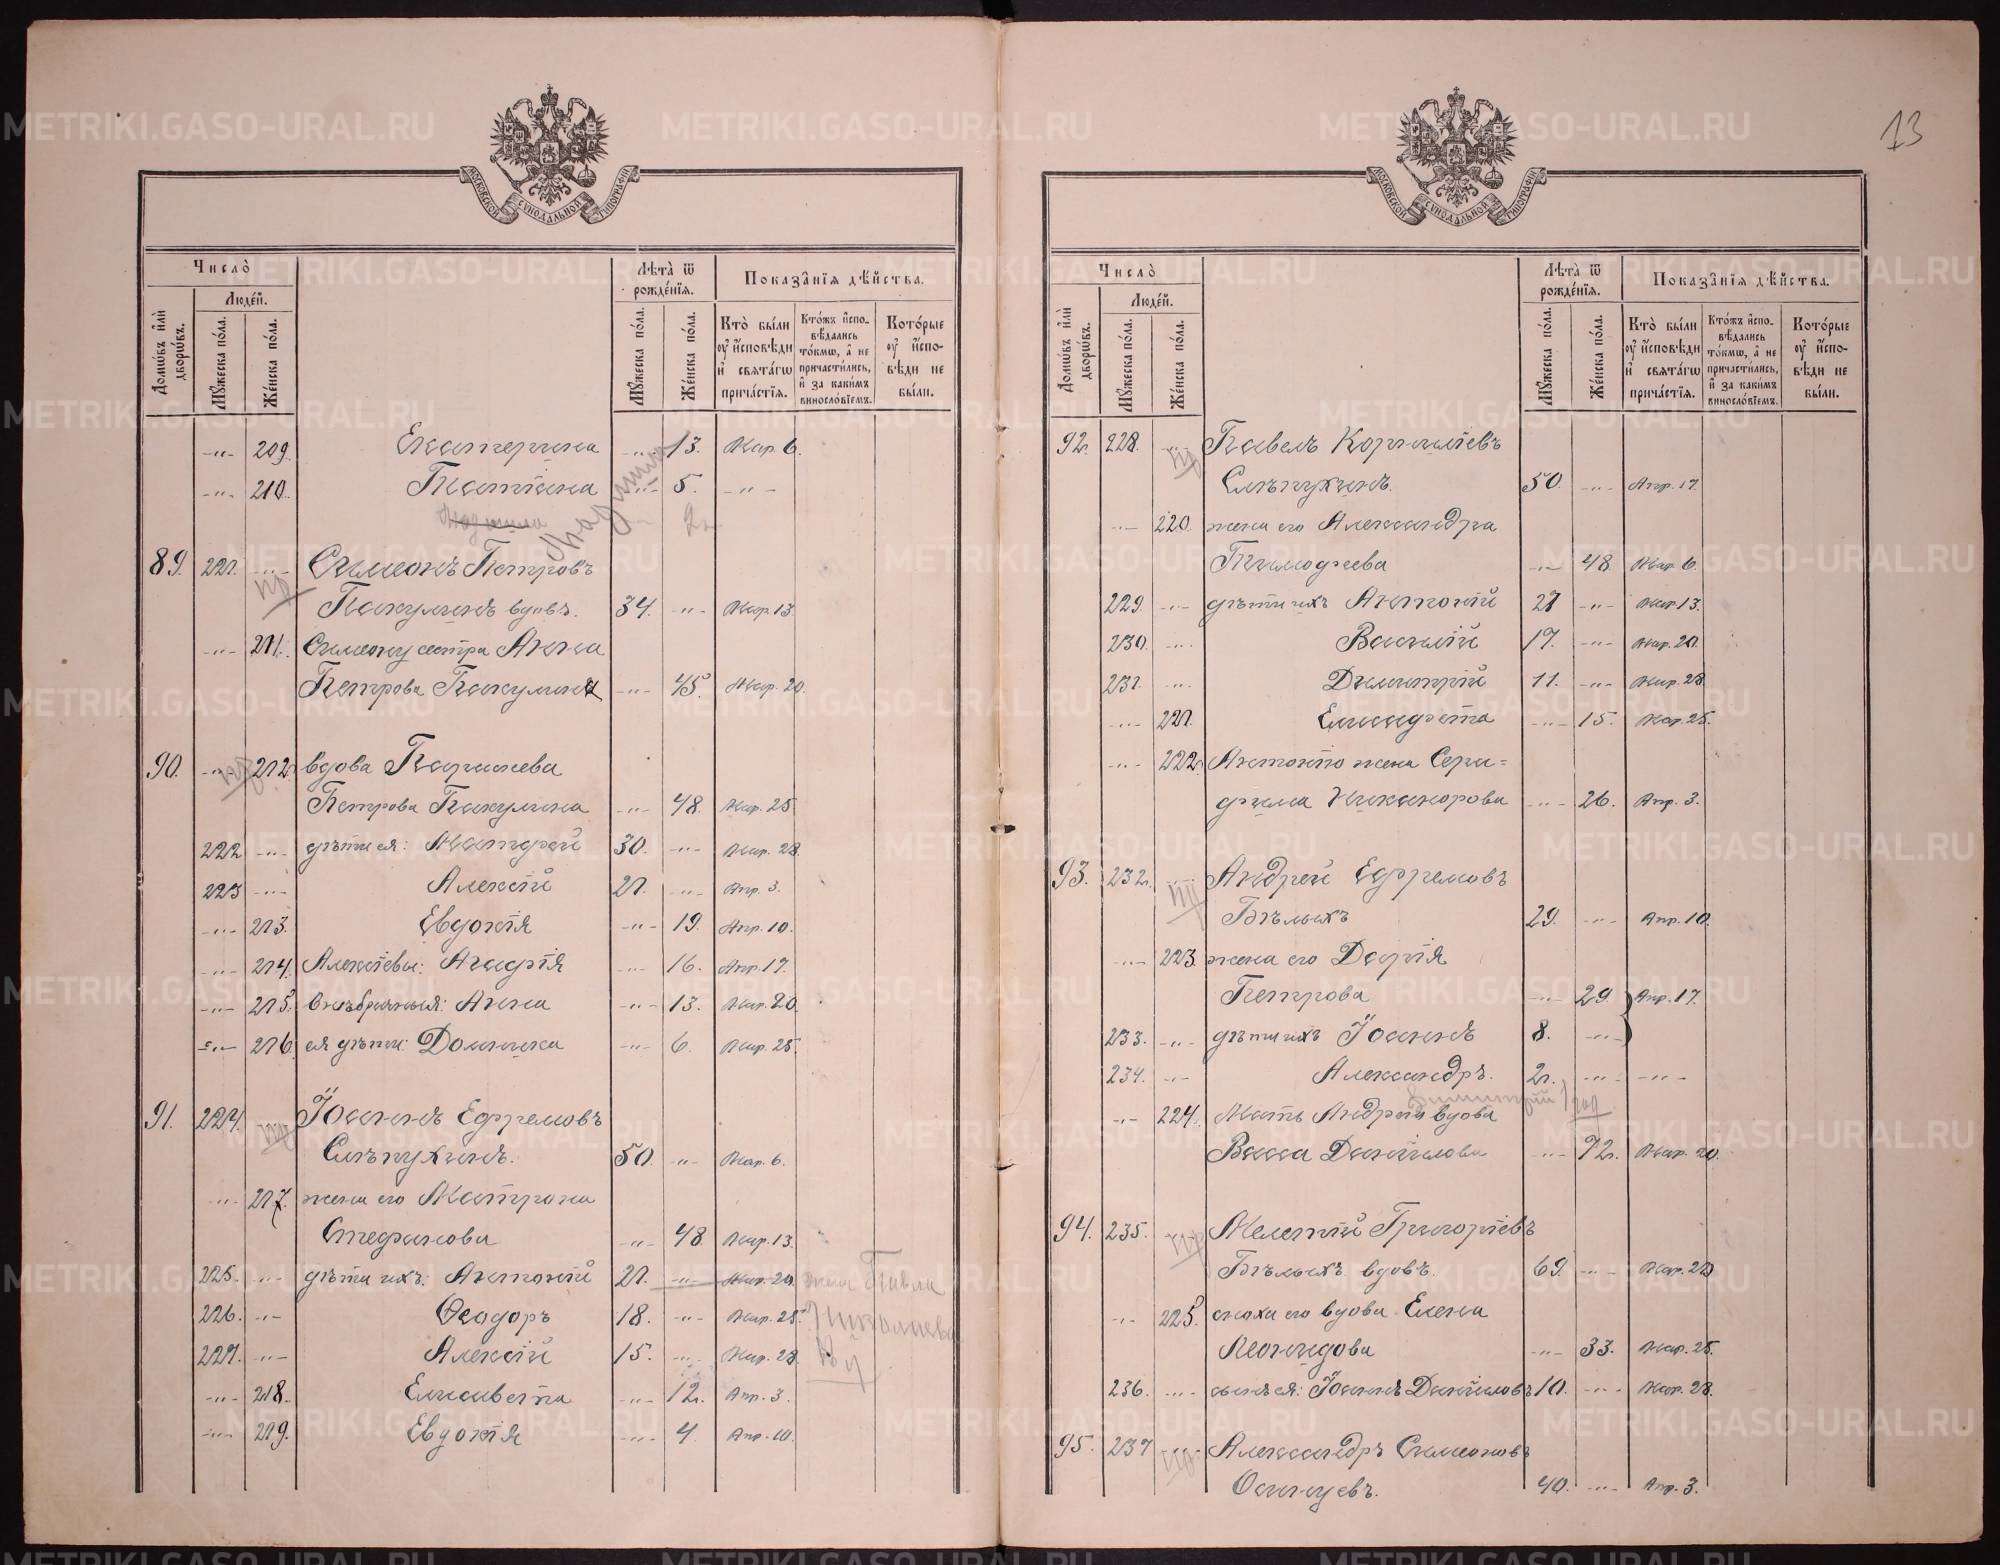 13
МОСКОВСКОЙ СѴНОДАЛЬНОЙ ТИПОГРАФІИ
Число̀
Людей.
Домѡвъ и҆лѝ дворѡвъ.
Мꙋжеска по́ла.
Же́нска по́ла.
Лѣта̀ ѿ рожде́нїѧ.
Мꙋжеска по́ла.
Же́нска по́ла.
Показа̑нїѧ дѣ́йства.
Кто̀ бы́ли ᲂу҆ и҆́сповѣди и҆ свѧта́гѡ прича́стїѧ.
Кто́жъ и҆спо-вѣдались то́кмѡ, а҆ не причасти́лись, и҆ за каки́мъ винослові́емъ.
Кото́рые ᲂу҆ и҆спо-вѣди не бы́ли.
-"- 209. Екатерина -"- 13. Мар. 6.
-"- 210. Татіана -"- 5. -"-
2
89. 221. -"- Симеонъ Петровъ
Пакулинъ вдовъ. 34. -"- Мар. 13.
-"- 211. Симеону сестра Анна
Петрова Пакулина -"- 45. Мар. 20.
90. -"- 212 вдова
Петрова Пакулина -"- 48. Мар. 25
222 -"- дѣти ея: 30. -"- Мар. 28.
223 -"- Алексій 21. -"- Апр. 3.
-"- 213. Евдокія -"- 19. Апр. 10.
-"- 214. Агафія -"- 16. Апр. 17.
-"- 215. внѣбрачныя: Анна -"- 13. Мар. 20
-"- 216. ея дѣти: Домника -"- 6. Мар. 25.
91. 224. Іоаннъ Ефремовъ
Слѣпухинъ. 50. -"- Мар. 6.
-"- 217. жена его Матрона
Стефанова -"- 48. Мар. 13.
225. -"- дѣти ихъ: Антоній 21. -"- Мар. 20 жена Павла
226. -"- Ѳеодоръ 18. -"- Мар. 25. Николаева
227. -"- Алексій 15. -"- Мар. 28
-"- 218. Елисавета -"- 12. Апр. 3.
-"- 219. Евдокія -"- 4. Апр. 10.
МОСКОВСКОЙ СѴНОДАЛЬНОЙ ТИПОГРАФІИ
Число̀
Людей.
Домѡвъ и҆лѝ дворѡвъ.
Мꙋжеска по́ла.
Же́нска по́ла.
Лѣта̀ ѿ рожде́нїѧ.
Мꙋжеска по́ла.
Же́нска по́ла.
Показа̑нїѧ дѣ́йства.
Кто̀ бы́ли ᲂу҆ и҆́сповѣди и҆ свѧта́гѡ прича́стїѧ.
Кто́жъ и҆спо-вѣдались то́кмѡ, а҆ не причасти́лись, и҆ за каки́мъ винослові́емъ.
Кото́рые ᲂу҆ и҆спо-вѣди не бы́ли.
92. 228. -"- Павелъ Корниліевъ
Слѣпухинъ. 50. -"- Апр. 17
-"- 220. жена его Александра
Тимофеева -"- 48 Мар. 6.
229. -"- дѣти ихъ Антоній 27 -"- Мар. 13.
230. -"- Василій 17. -"- Мар. 20.
231. -"- Димитрій 11. -"- Мар. 28
-"- 221. Елисавета -"- 15. Мар. 25.
-"- 222. Антонію жена Сера=
фима Никанорова -"- 26. Апр. 3.
93. 232. Андрей Ефремовъ
Бѣлыхъ 29. -"- Апр. 10.
-"- 223. жена его Дарія
Петрова -"- 29. Апр. 17.
233. -"- дѣти ихъ Іоаннъ 8. -"-
234. -"- Александръ. 2. -"- -"-
Димитрій 1 год
-"- 224. Мать Андрея вдова
Васса Даніилова -"- 72. Мар. 20.
94. 235. Мелетій Григоріевъ
Бѣлыхъ вдовъ. 69. -"- Мар. 20
-"- 225. сноха его вдова Елена
Леонидова -"- 33. Мар. 25.
236. -"- сынъ ея: Іоаннъ Даніиловъ 10. -"- Мар. 28.
95. 237 Александръ Симеоновъ
Осинцевъ. 40. -"- Апр. 3.
METRIKI.GASO-URAL.RU